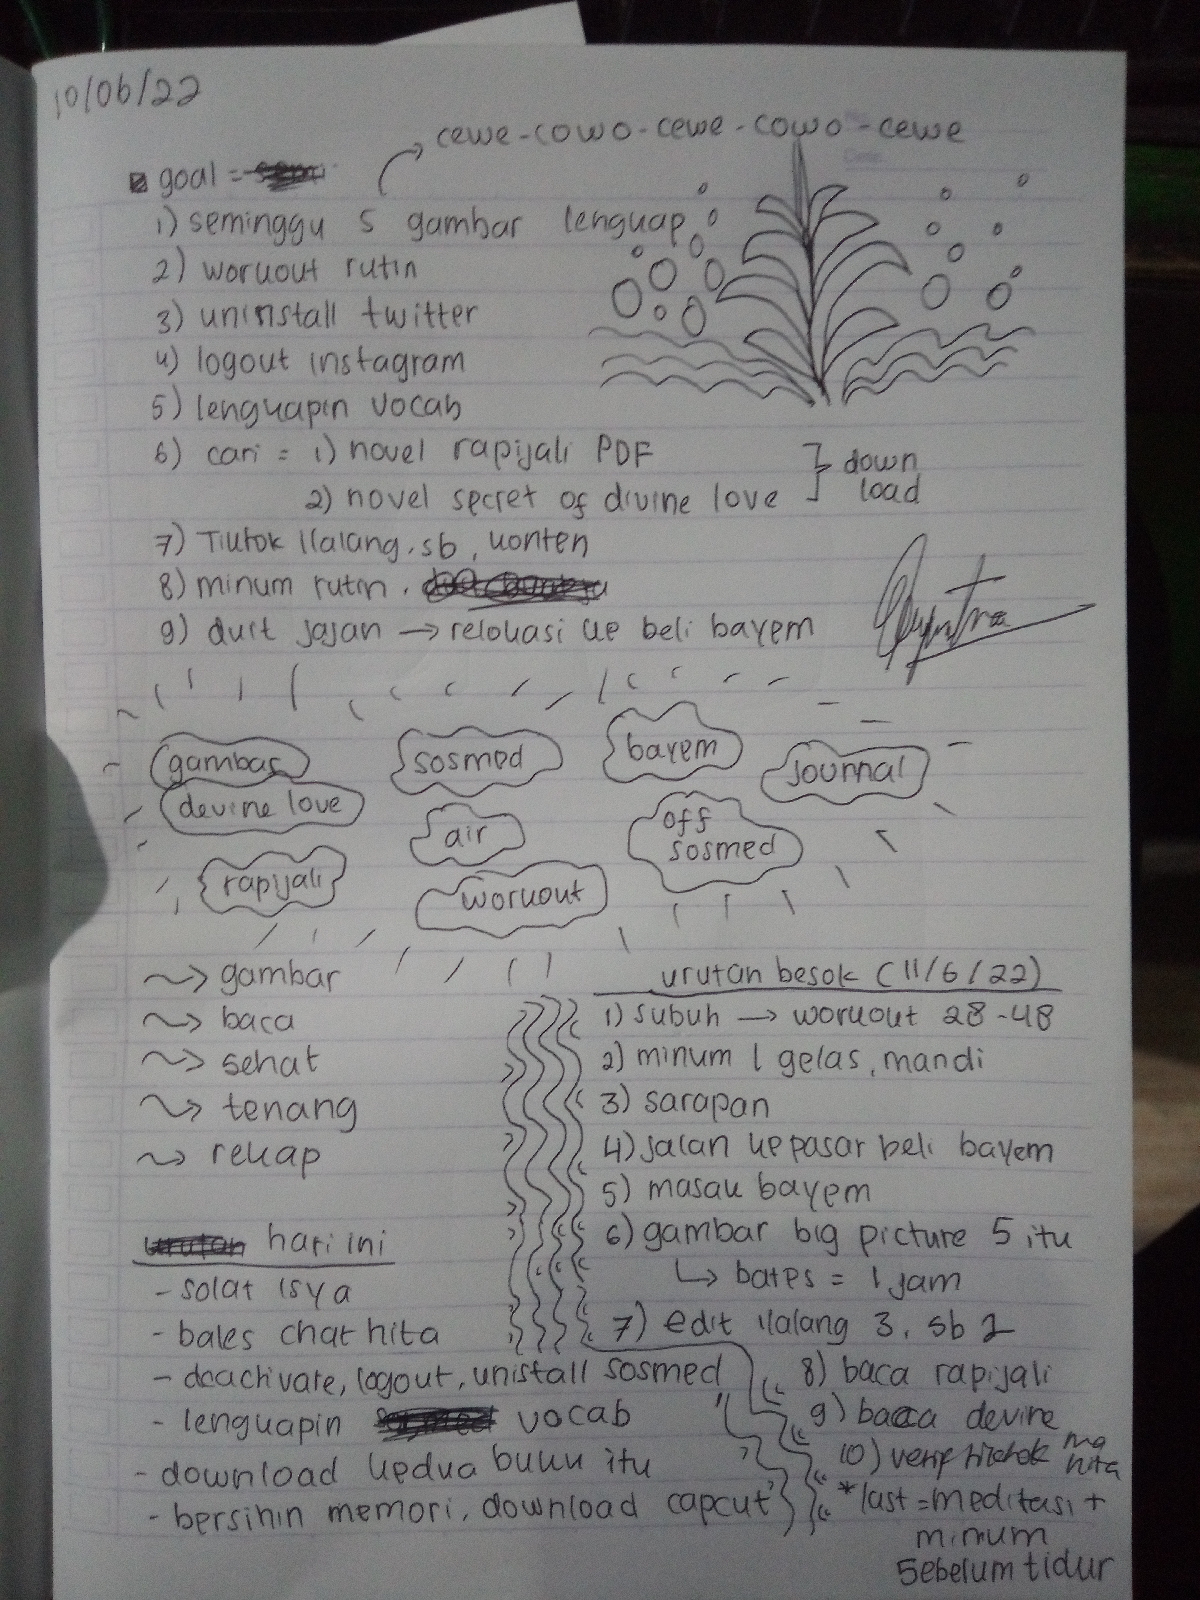 10/06/22
cewe-cowo-cewe-cowo-cewe
goal =
1) seminggu 5 gambar lengkap
2) workout rutin
3) uninstall twitter
4) logout instagram
5) lengkapin vocab
6) cari = 1) novel rapijali PDF
2) novel secret of divine love
} down
load
7) Tiktok ilalang, sb, konten
8) minum rutin.
9) duit jajan → relokasi ke beli bayem
gambar
sosmed
bayem
journal
devine love
air
off
sosmed
rapijali
workout
~> gambar
~> baca
~> sehat
~> tenang
~> rekap
urutan besok (11/6/22)
1) subuh → workout 28-48
2) minum 1 gelas, mandi
3) sarapan
4) jalan ke pasar beli bayem
5) masak bayem
6) gambar big picture 5 itu
↳ bates = 1 jam
7) edit ilalang 3, sb 2
8) baca rapijali
9) baca devine
10) verif tiktok ma
hita
*last = meditasi +
minum
sebelum tidur
urutan hari ini
- solat isya
- bales chat hita
- deactivate, logout, unistall sosmed
- lengkapin vocab
- download kedua buku itu
- bersihin memori, download capcut